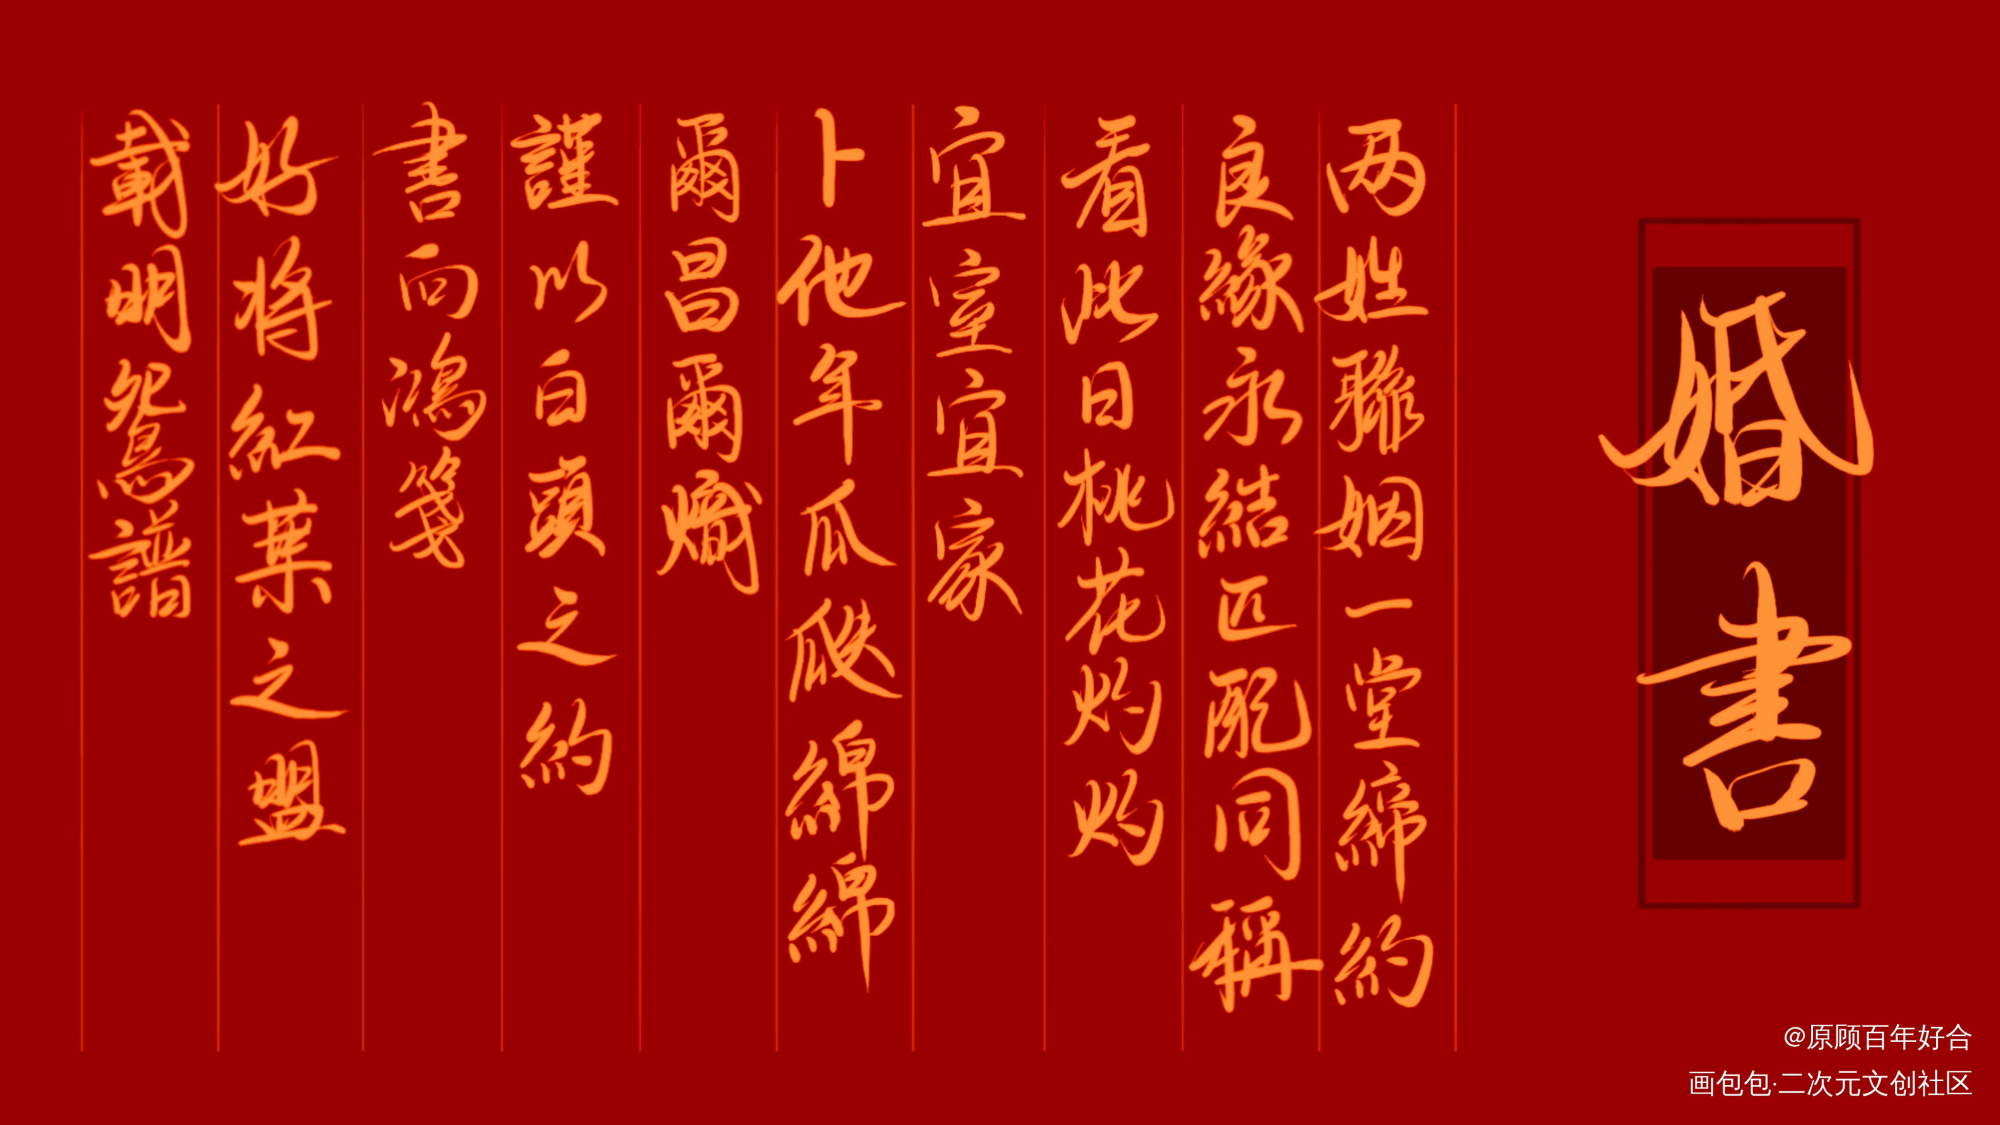 婚書
两姓聯姻一堂締約
良緣永結匹配同稱
看此日桃花灼灼
宜室宜家
卜他年瓜瓞綿綿
爾昌爾熾
謹以白頭之約
書向鴻箋
好将紅葉之盟
載明鴛譜
@原顾百年好合
画包包·二次元文创社区